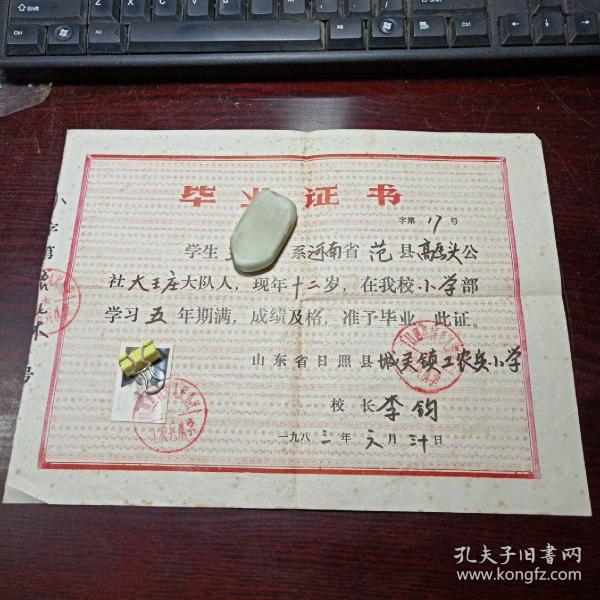 毕业证书
字第17号
学生 系河南省范县高码头公
社大王庄大队人，现年十二岁，在我校小学部
学习五年期满，成绩及格，准予毕业，此证。
山东省日照县城关镇工农兵小学
校长李钧
一九八三年元月三十日
孔夫子旧书网
www.kongfz.com